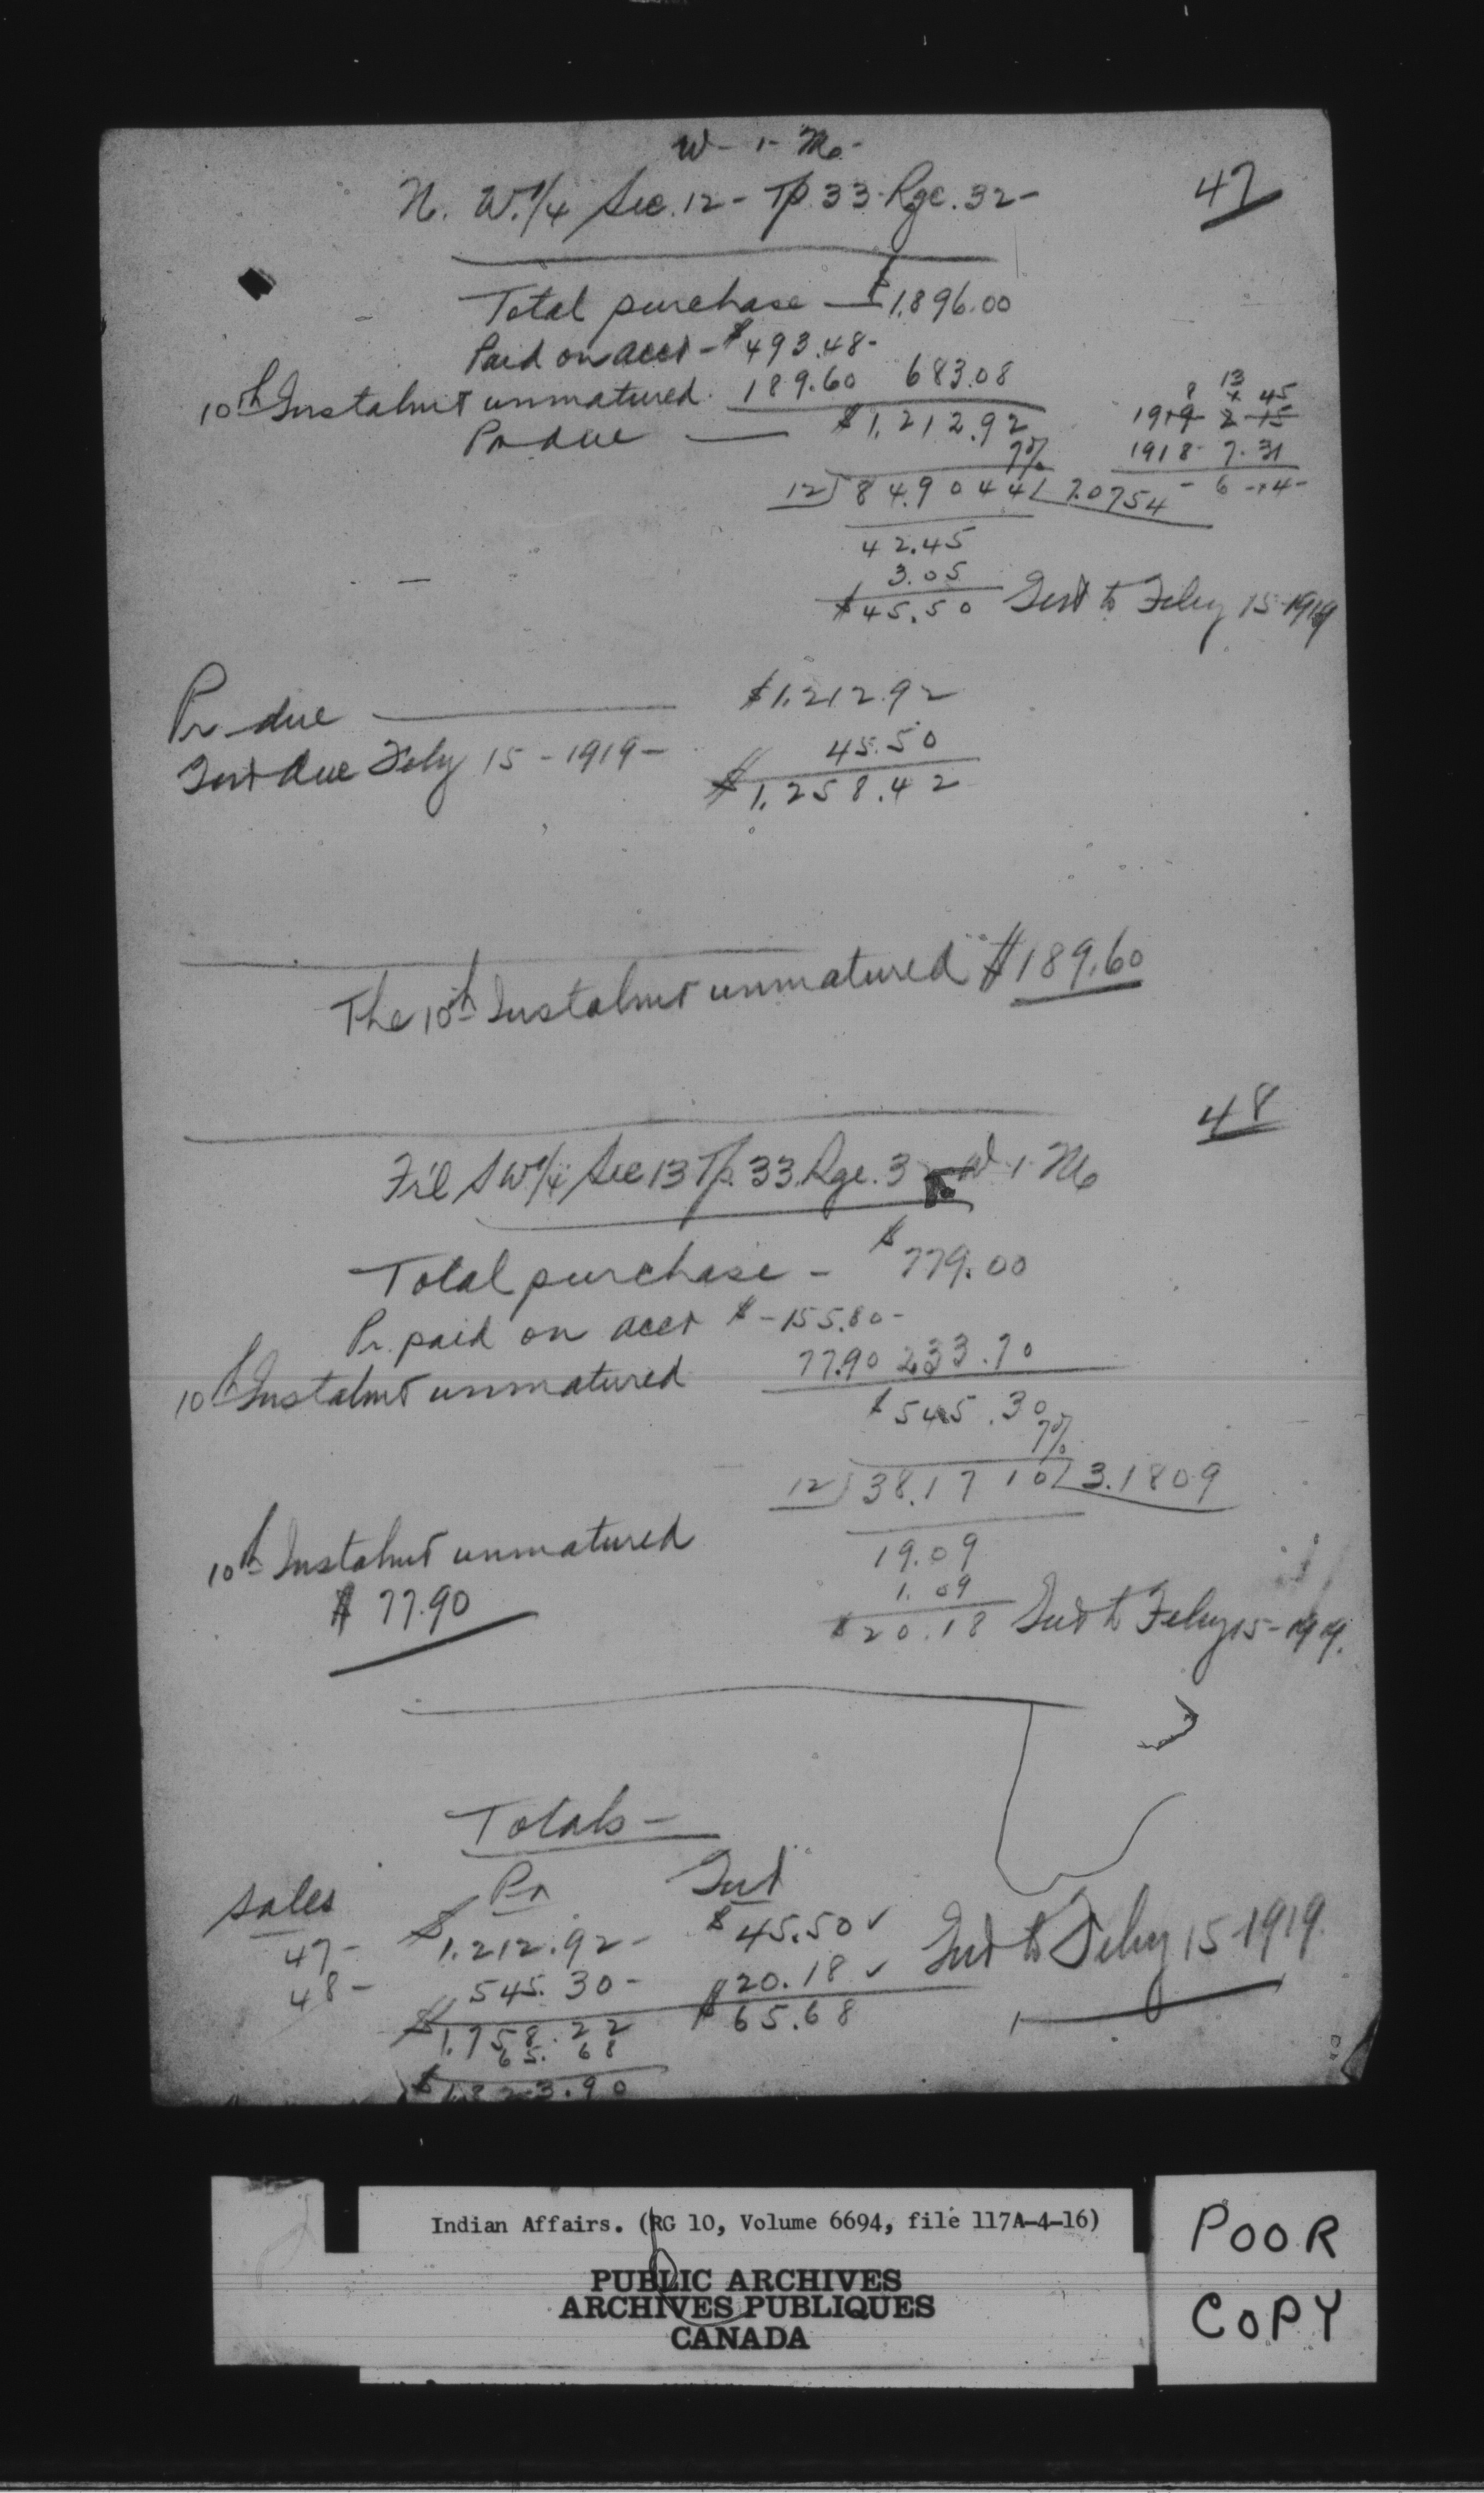 W - 1 - M.
N. W. 1/4 Sec. 12 - Tp. 33 - Rge. 32 -
47
Total purchase — $1,896.00
Paid on acct - $493.48 -
10th Instalmt unmatured 189.60 683.08
Pr due — $1,212.92
7%
8 13 45
1919 2 15
1918 - 7 - 31
- 6 - 14 -
12 ) 84.9044 ( 7.0754
42.45
3.05
$45.50 Int to Feby 15 1919
Pr due — $1,212.92
Int due Feby 15 - 1919 - 45.50
$1,258.42
The 10th Instalmt unmatured $189.60
48
Fr'l S W 1/4 Sec 13 Tp. 33. Rge. 3 W 1. M
Total purchase - $779.00
Pr. paid on acct $ - 155.80 -
10th Instalmt unmatured 77.90 233.70
$545.30
7%
12 ) 38.1710 ( 3.1809
10th Instalmt unmatured
$77.90
19.09
1.09
$20.18 Int to Feby 15 - 1919.
Totals -
Sales Pr Int
47 - $1,212.92 - $45.50 ✓ Int to Feby 15 1919.
48 - 545.30 - $20.18 ✓
$1,758.22 $65.68
65.68
$1,823.90
Indian Affairs. (RG 10, Volume 6694, file 117A-4-16)
PUBLIC ARCHIVES
ARCHIVES PUBLIQUES
CANADA
POOR
COPY